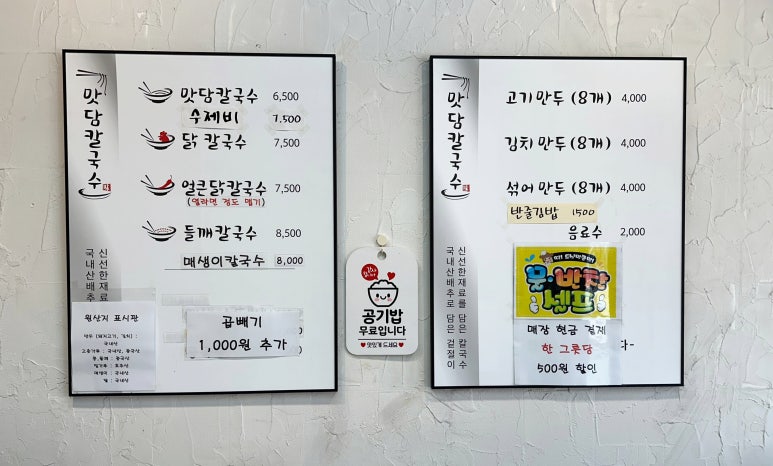 맛담칼국수
맛담칼국수 6,500
수제비 7,500
닭 칼국수 7,500
얼큰닭칼국수 7,500
(열라면 정도 맵기)
들깨칼국수 8,500
매생이칼국수 8,000
신선한재료를
국내산배추로
원산지 표시판
국내산
곱빼기
1,000원 추가
공기밥
무료입니다
맛있게 드세요
맛담칼국수
고기만두 (8개) 4,000
김치만두 (8개) 4,000
섞어만두 (8개) 4,000
반줄김밥 1500
음료수 2,000
신선한재료를 담은 칼국수
국내산배추로 담은 겉절이
물·반찬
셀프
매장 현금 결제
한 그릇당
500원 할인
다-